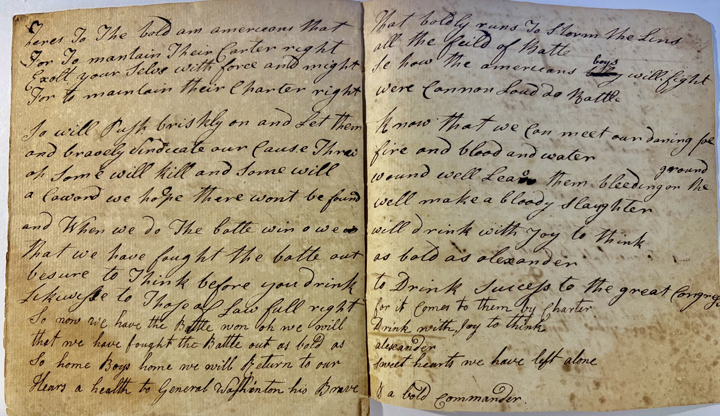 heres To The bold am americans that
For To mantain Their Carter right
Exolt your Selves with force and might
For to maintain their Charter right
So will Push briskly on and Let them
and bravely vindicate our Cause Thro
of Some will kill and Some will
a Coward we hope there wont be found
and When we do The batle win o we
That we have fought the batle out
besure to Think before you drink
Likewise to Those of Law full right
So now we have the Battle won oh we will
that we have fought the Battle out as bold as
So home Boys home we will Return to our
Hears a health to General Washinton his Brave
That boldly runs To Storm the Lins
all the feild of Batle
Se how the americans boys will fight
were Cannon Loud do Rattle
Know that we Can meet our daring foe
fire and blood and water
wound well Lean them bleeding on the ground
well make a bloody Slaughter
will drink with Joy to think
as bold as alexander
to Drink Suicess to the great Congres
for it Comes to them by Charter
Drink with Joy to think
alexander
Sweet hearts we have left alone
& a bold Commander.